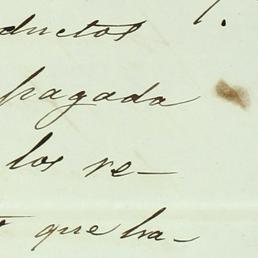 ductos
pagada
los re-
que ha-